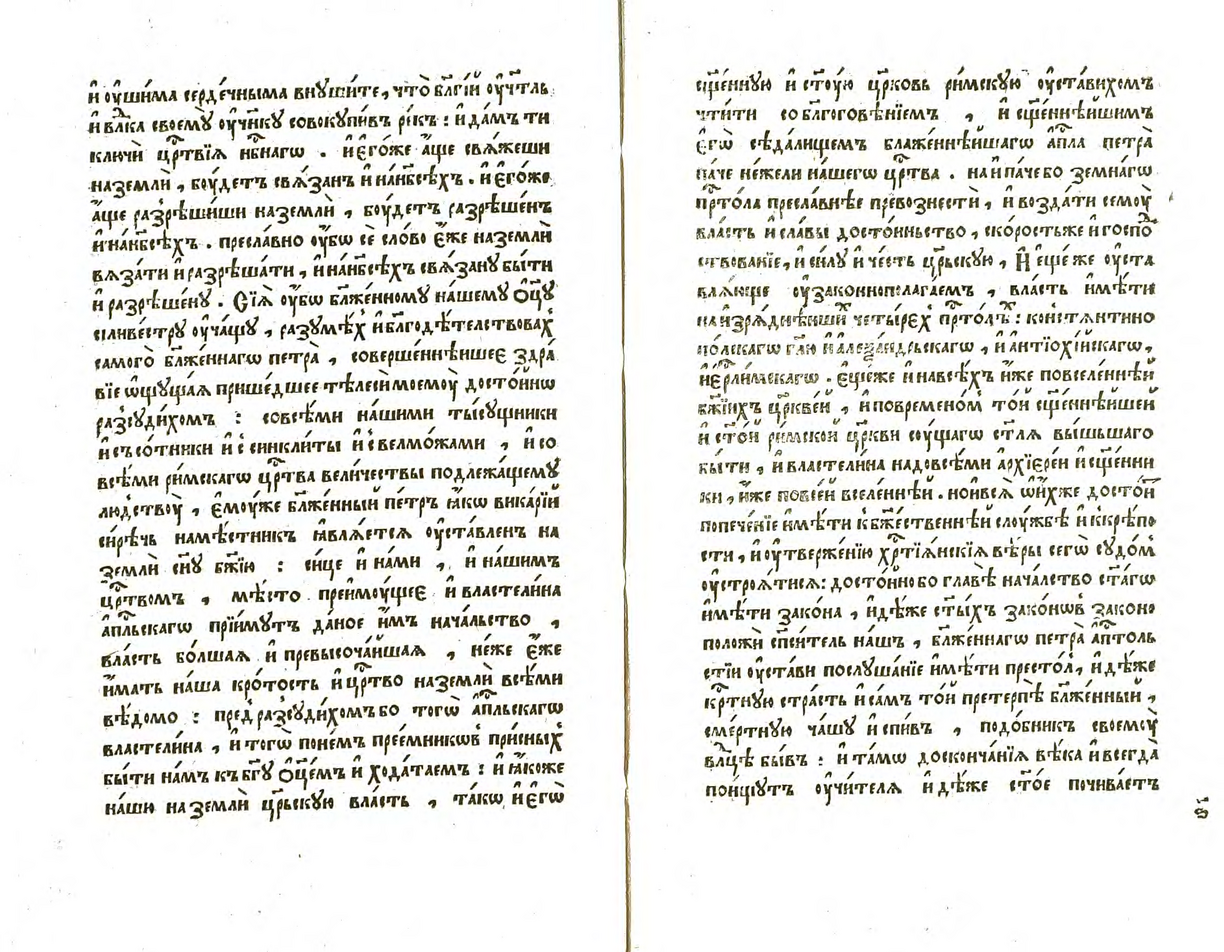 и҆ ᲂу҆ши́ма серде́чныма внꙋши́те, что̀ бл҃гі́й ᲂу҆чт҃ль
и҆ влⷣка своемꙋ̀ ᲂу҆чн҃кꙋ совокꙋпи́въ ре́къ : и҆ да́мъ ти
ключѝ црⷭ҇твїѧ нбⷭ҇наго . и҆ є҆го́же а҆́ще свѧ́жеши
наземлѝ , бꙋ́детъ свѧ́занъ и҆ нанб҃сѣ́хъ . и҆ є҆го́же
а҆́ще разрѣши́ши наземлѝ , бꙋ́детъ разрѣше́нъ
и҆ нанб҃сѣ́хъ . преславно ᲂу҆́бѡ сѐ сло́во є҆́же наземлѝ
вѧза́ти и҆ разрѣша́ти , и҆ нанб҃сѣ́хъ свѧ́занꙋ бы́ти
и҆ разрѣше́нꙋ . Сїѧ̀ ᲂу҆́бѡ бл҃же́нномꙋ на́шемꙋ ѻ҆ц҃ꙋ̀
силивестрꙋ ᲂу҆ча́щꙋ , разꙋмѣ́хъ и҆ благодѣ́телствовахъ
самого̀ бл҃же́ннагѡ петра̀ , соверше́ннѣишеє здра́
вїе ѡ҆щꙋща́ѧ прише́дшее тѣлесѝ моемꙋ̀ досто́йнѡ
разсꙋди́хомъ : совсѣ́ми на́шими ты́сꙋщники
и҆ съсо́тники и҆ с̾ синкли́ты и҆ с̾ велмо́жами , и҆ со
всѣ́ми ри́мскагѡ црⷭ҇тва вели́чествы подлежа́щемꙋ
лю́дствꙋ̀ , є҆мꙋ́же бл҃же́нный пе́тръ ꙗ҆́кѡ вика́рїй
си́рѣчь намѣ́стникъ ꙗ҆влѧ́етсѧ ᲂу҆ста́вленъ на
землѝ сн҃ꙋ бж҃їю : си́це и҆ на́ми , и҆ на́шимъ
црⷭ҇твомъ , мѣ́сто преимꙋ́щеє и҆ властели́на
а҆пⷭ҇льскагѡ прїи́мꙋтъ да́ное и҆̀мъ нача́льство ,
вла́сть бо́лшаѧ и҆ превысоча́йшаѧ , не́же є҆́же
и҆́мать на́ша кро́тость и҆ црⷭ҇тво наземлѝ всѣ́ми
вѣ́домо : пред̾разсꙋди́хомъ бо тогѡ̀ а҆пⷭ҇льскагѡ
властели́на , и҆ тогѡ̀ поне́мъ прее́мникѡвъ при́сныхъ
бы́ти на́мъ къ бг҃ꙋ ѻ҆ц҃е́мъ и҆ хода́таемъ : и҆ ꙗ҆́коже
на́шю наземлѝ црⷭ҇ьскꙋю вла́сть , та́кѡ и҆ є҆гѡ̀
сщ҃е́ннꙋю и҆ ст҃ꙋ́ю цр҃ковь ри́мскꙋю ᲂу҆ста́вихомъ
чти́ти со бл҃гогове́нїемъ , и҆ сщ҃е́ннѣйшимъ
є҆гѡ̀ сѣда́лищемъ блаже́ннѣйшагѡ а҆пⷭ҇ла петра̀
па́че не́жели на́шегѡ црⷭ҇тва . наипа́че бо земна́гѡ
прⷭ҇то́ла пресла́внѣе превознестѝ , и҆ возда́ти семꙋ̀
вла́сть и҆ сла́вы досто́иньство , ско́ростьже и҆ госпо́д
ствованїе , и҆ си́лꙋ и҆ че́сть црⷭ҇ьскꙋю , И҆ еще́ же ᲂу҆ста
влѧ́юще ᲂу҆законнополага́емъ , вла́сть и҆мѣ́ти
наизрѧ́днѣйшїй четы́рехъ прⷭ҇то́лъ : констѧнтино
по́лскагѡ гл҃ю и҆ алеѯа́ндрьскагѡ , и҆ антїохі́йскагѡ ,
и҆ерⷭ҇ли́мскагѡ . є҆ще́же и҆ навсѣ́хъ и҆́же повселе́ннѣй
бж҃їихъ цр҃кве́й , и҆ повремено́мъ то́й сщ҃е́ннѣйшей
и҆ ст҃о́й ри́мской цр҃кви сꙋ́щагѡ ст҃лѧ вы́шьшаго
бы́ти , и҆ властели́на надовсѣ́ми а҆рхїере́и и҆ сщ҃е́нни
ки , и҆́же повсе́й вселе́ннѣй . но и҆ всѧ̀ ѡ҆ни́хже досто́й
попече́нїе и҆мѣ́ти к̾ бж҃е́ственнѣй слꙋ́жбѣ и҆ кхрѣ́по
сти , и҆ ᲂу҆тверже́нїю хрⷭ҇тїѧ́нскїѧ вѣ́ры сегѡ̀ сꙋдо́мъ
ᲂу҆строѧ́тисѧ : досто́йно бо главѣ̀ нача́лство ст҃а́гѡ
и҆мѣ́ти зако́на , и҆дѣ́же ст҃ы́хъ зако́нѡвъ законо
положѝ сп҃си́тель на́шъ , бл҃же́ннагѡ петра̀ а҆пⷭ҇толь
стїи ᲂу҆ста́ви послꙋша́нїе и҆мѣ́ти престо́лъ , и҆дѣ́же
крⷭ҇тнꙋю стра́сть и҆ са́мъ то́й претерпѣ̀ бл҃же́нный ,
сме́ртнꙋю ча́шꙋ и҆спи́въ , подо́бникъ своемꙋ̀
влⷣцѣ бы́въ : и҆ та́мѡ досконча́нїѧ вѣ́ка и҆ всегда̀
пои́щꙋтъ ᲂу҆чи́телѧ и҆дѣ́же ст҃о́е почива́етъ